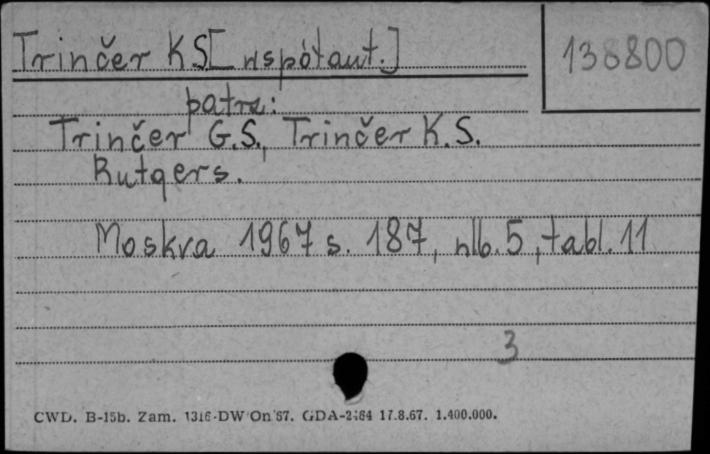 Trinčer K S [wspótaut.]
138800
patrz:
Trinčer G.S., Trinčer K.S.
Rutgers.
Moskva 1967 s. 187, nlb. 5, tabl. 11
3
CWD. B-15b. Zam. 1316-DW On 67. GDA-2464 17.8.67. 1.400.000.